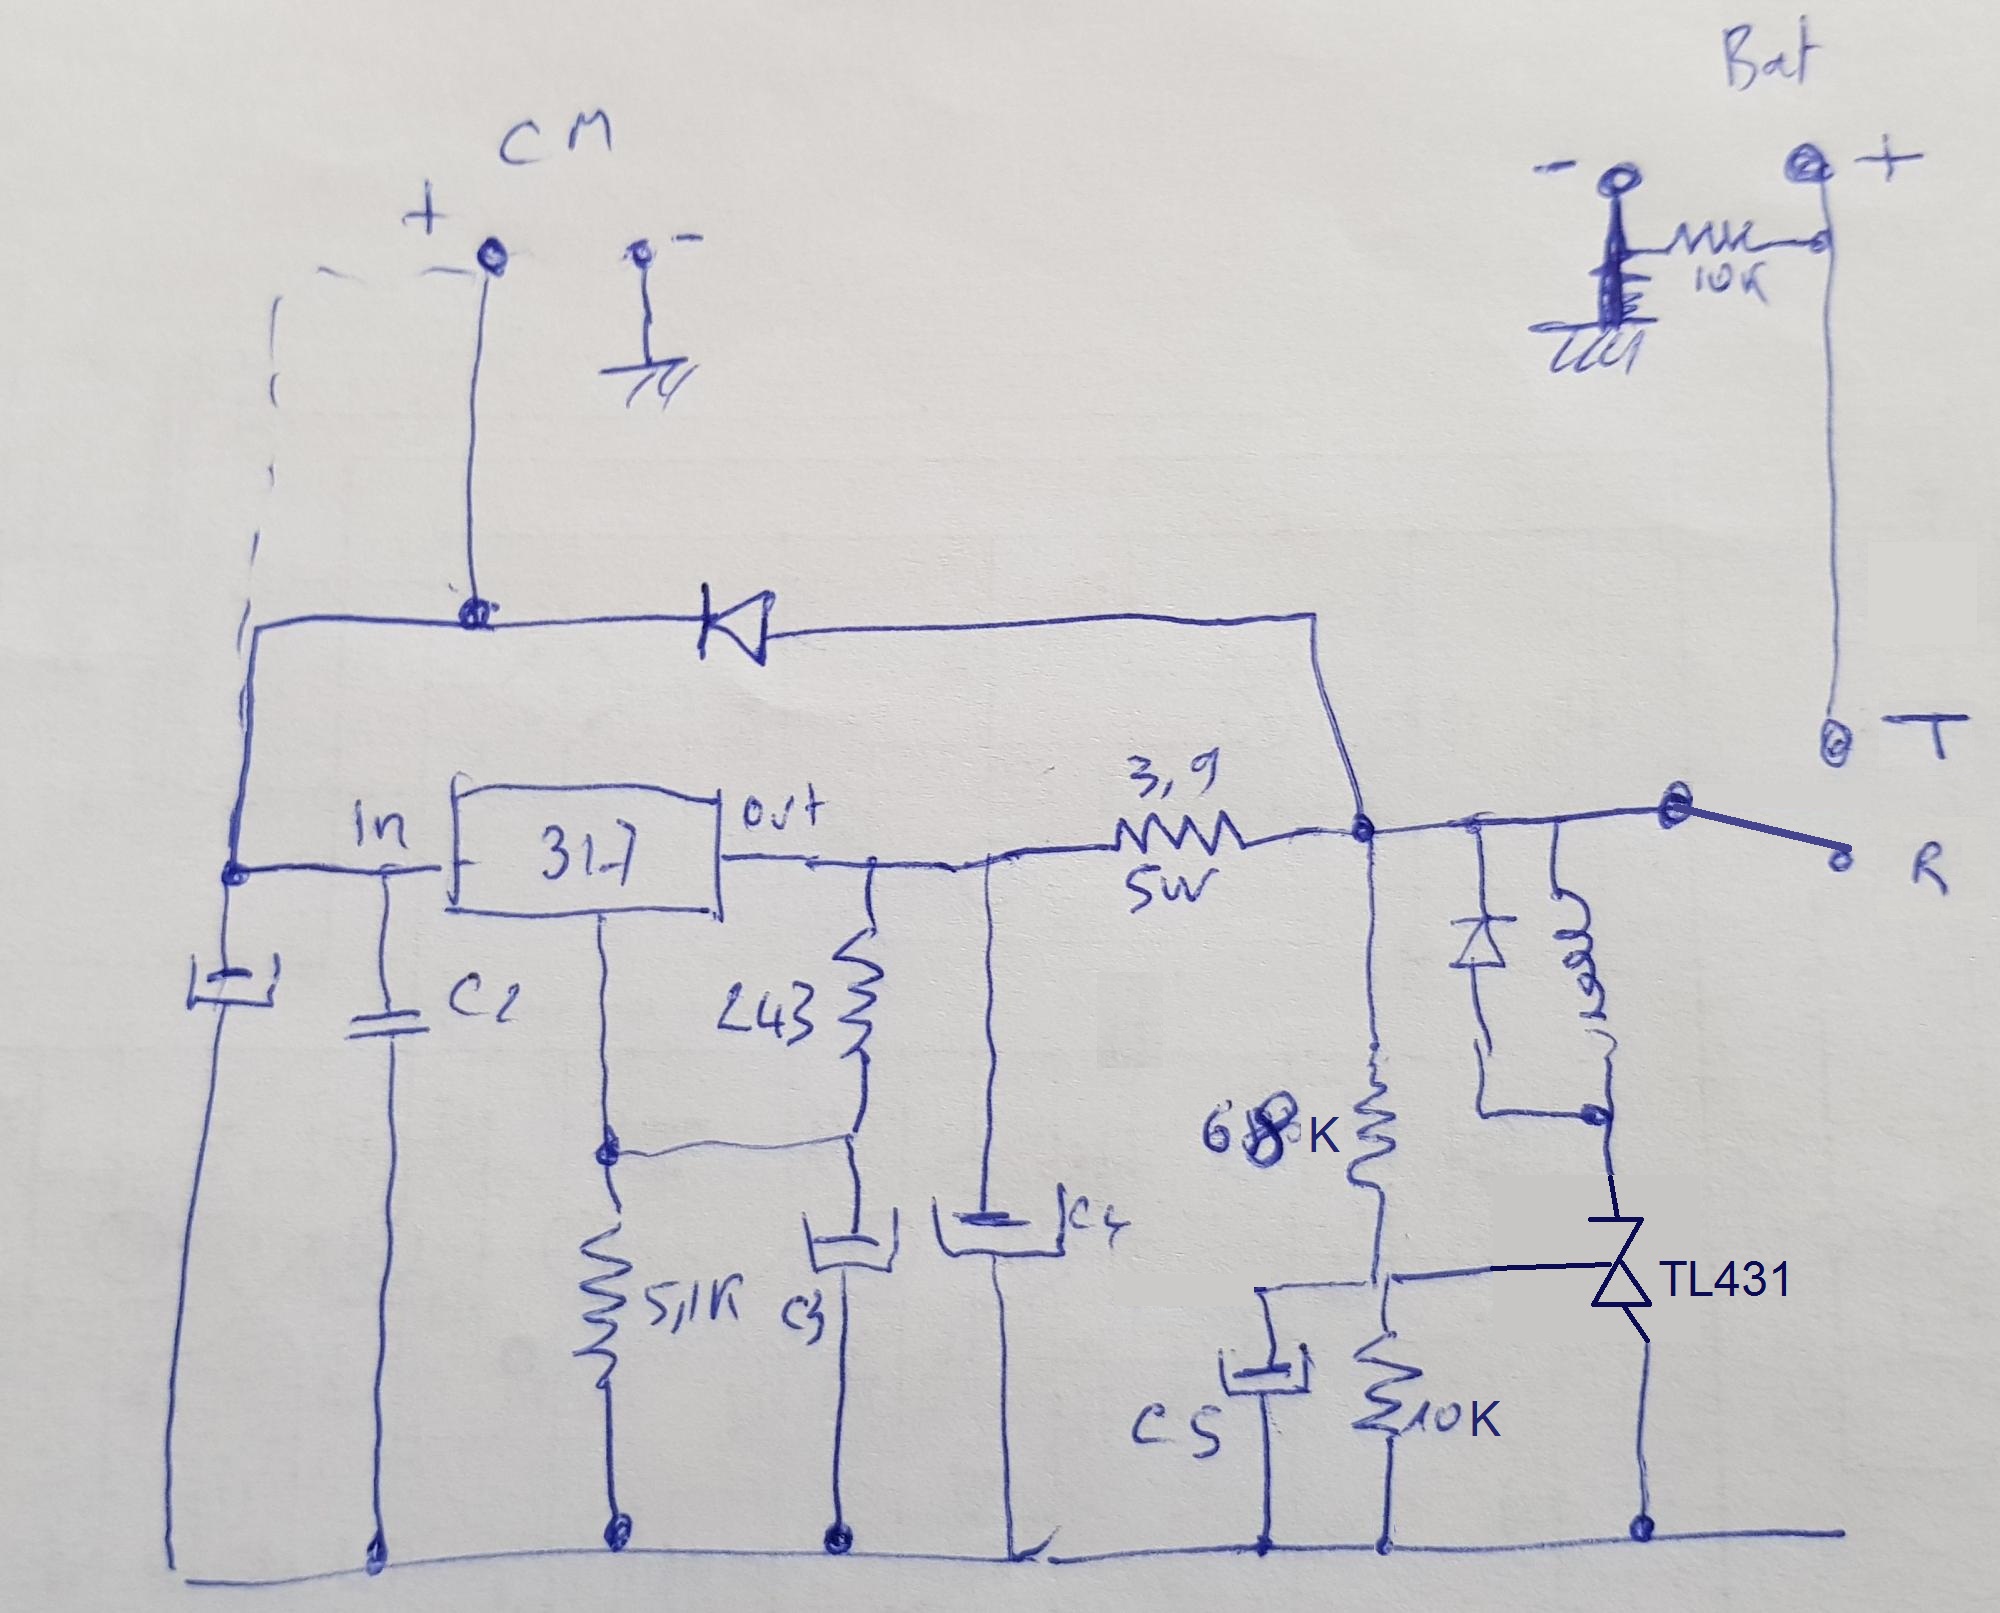 Bat
CM
+
-
-
+
10K
T
3,9
5W
In
317
out
R
C2
243
68K
C4
5,1K
C3
TL431
C5
10K